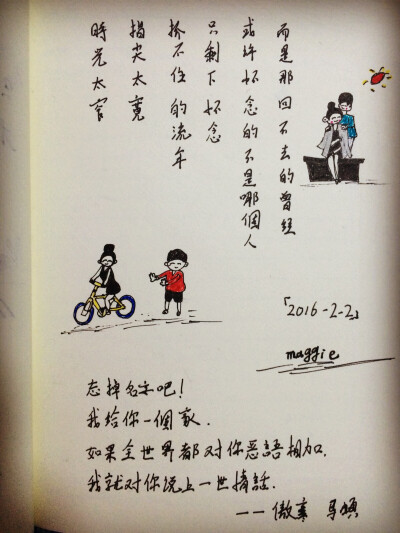 時光太窄
指尖太寬
不住的流年
只剩下怀念
或许怀念的不是哪個人
而是那回不去的曾经
「2016-2-2」
maggie
忘掉名字吧！
我给你一個家.
如果全世界都对你恶語相加.
我就对你说上一世情話.
——傲寒 马頔